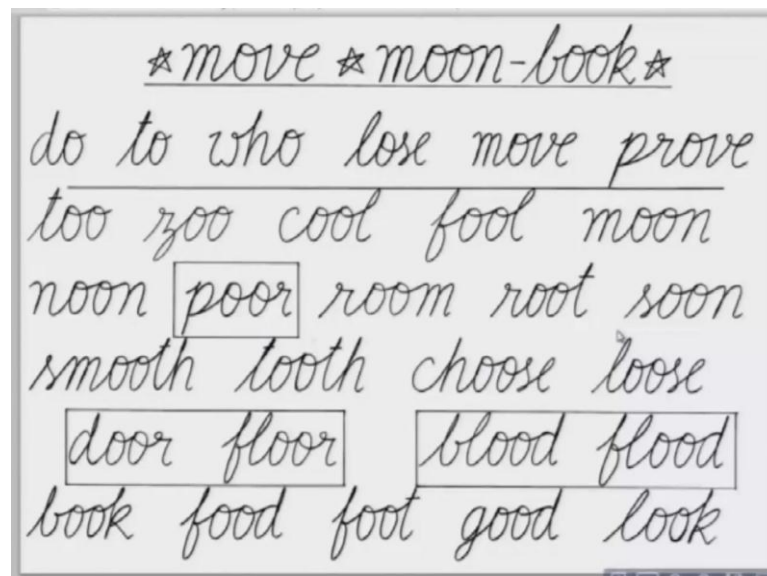 ☆move ☆moon-book☆
do to who lose move prove
too zoo cool fool moon
noon poor room root soon
smooth tooth choose loose
door floor blood flood
book food foot good look